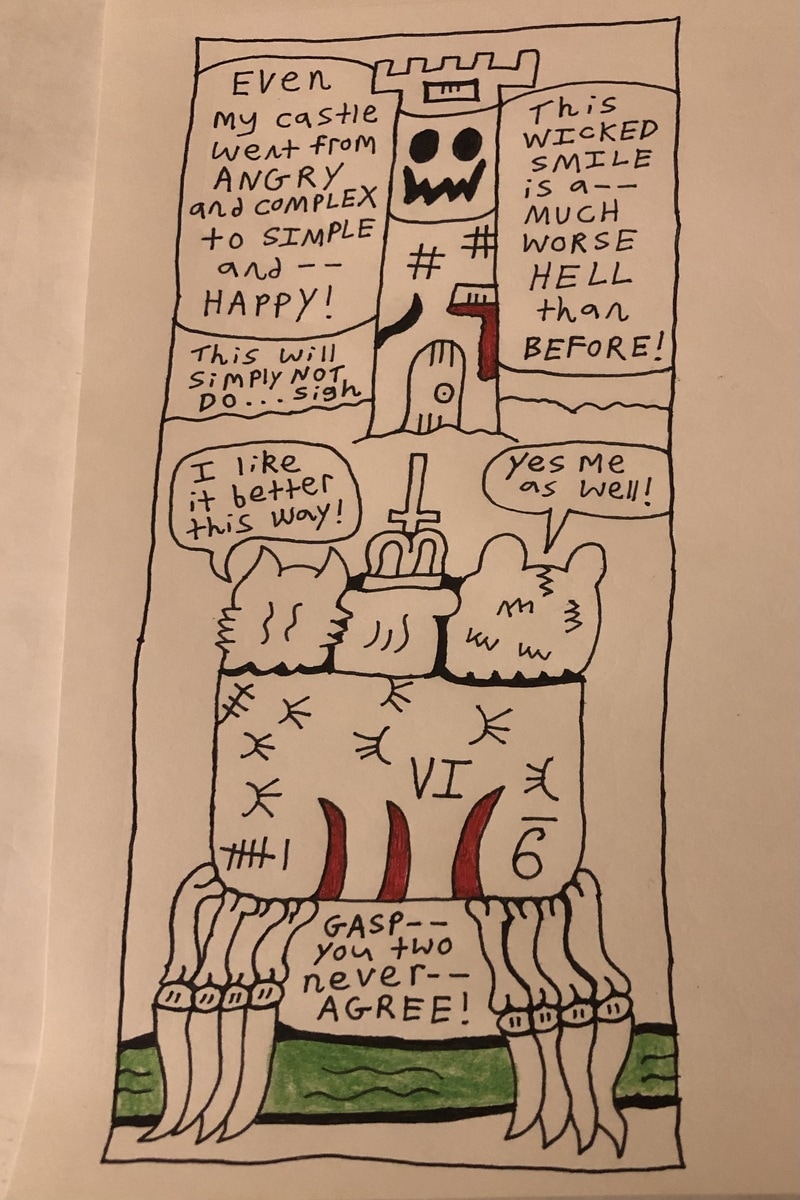 Even
my castle
went from
ANGRY
and COMPLEX
to SIMPLE
and --
HAPPY!
This will
SiMPLY NOT
DO... sigh
This
WICKED
SMILE
is a--
MUCH
WORSE
HELL
than
BEFORE!
# #
I like
it better
this way!
Yes Me
as well!
VI
6
GASP--
you two
never--
AGREE!